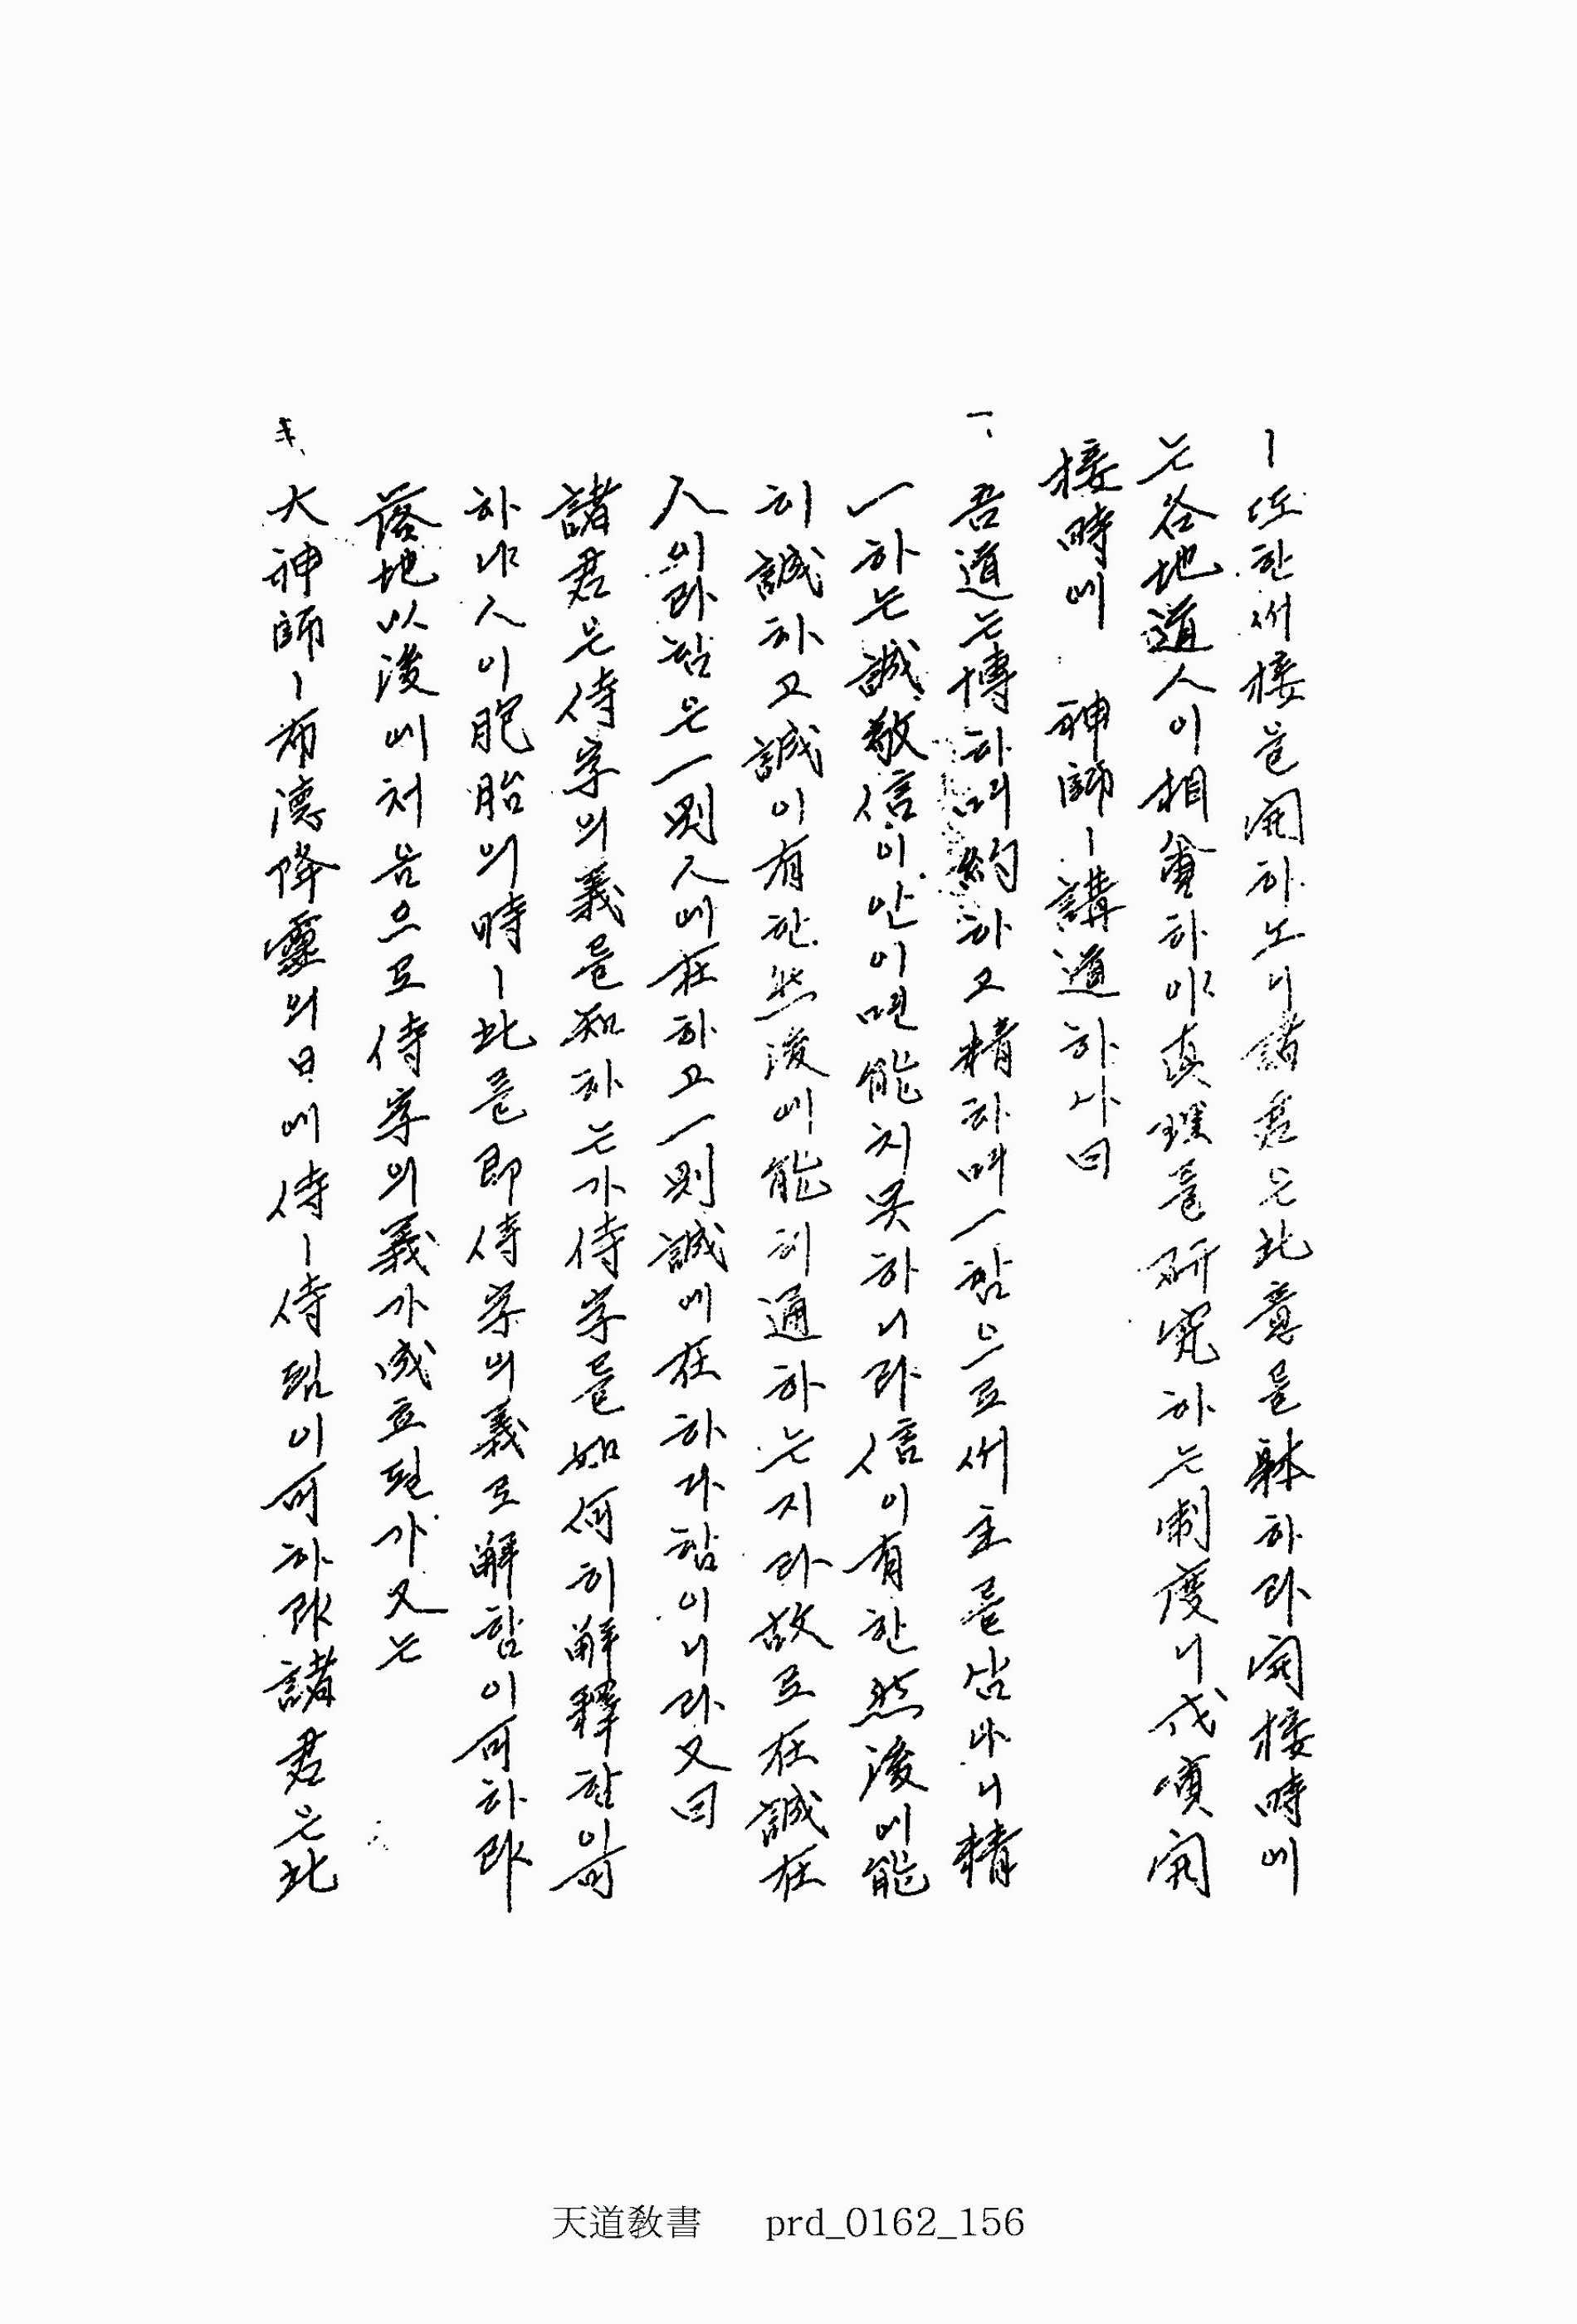 ㅣ在한 서 接을 開하노니 諸君은 此意를 躰하라 開接時에
는 各地道人이 相會하야 眞理를 硏究하는 制度니 戊寅開
接時에 神師ㅣ 講道하사 曰
一、吾道는 博하며 約하고 精하며 一함으로써 主를 삼나니 精
一하는 誠、敬、信이 안이면 能치 못하니라 信이 有한 然後에 能
히 誠하고 誠이 有한 然後에 能히 通하는지라 故로 在誠在
人이라 함은 一則人에 在하고 一則誠에 在하다 함이니라 又曰
諸君은 侍字의 義를 知하는가 侍字를 如何히 解釋함이 可
하냐 人이 胞胎의 時ㅣ 此를 卽 侍字의 義로 解함이 可하랴
落地以後에 처음으로 侍字의 義가 成立될가 又는
大神師ㅣ 布德降靈의 日에 侍ㅣ 侍됨이 可하랴 諸君은 此
天道敎書 prd_0162_156